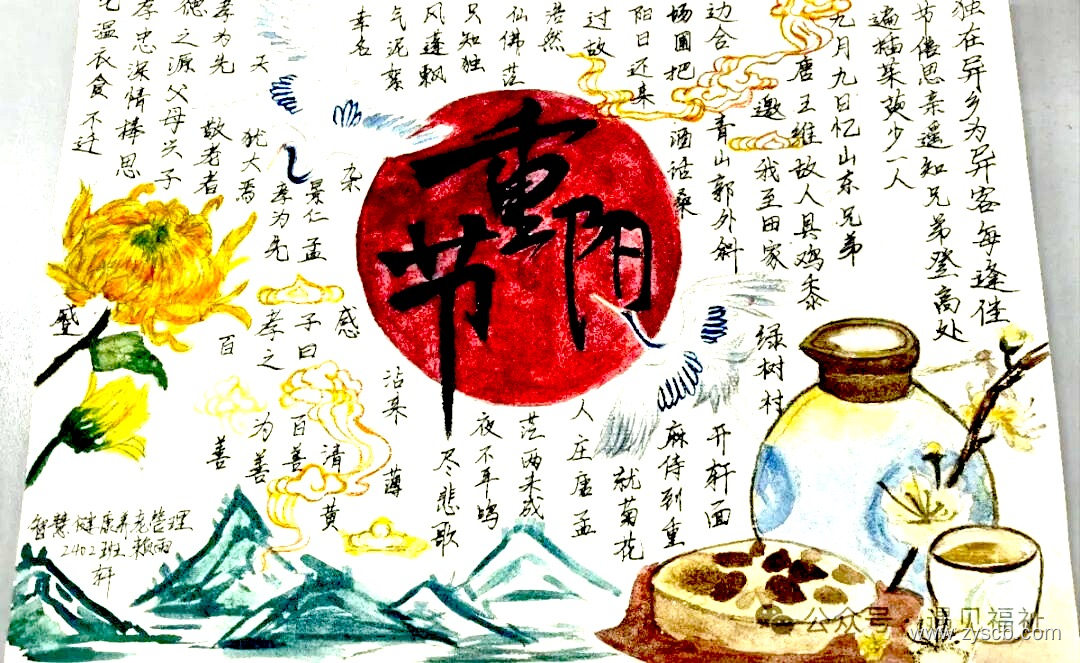 独在异乡为异客每逢佳
节倍思亲遥知兄弟登高处
遍插茱萸少一人
九月九日忆山东兄弟
唐王维故人具鸡黍
邀我至田家
绿树村
边合青山郭外斜
开轩面
场圃把酒话桑
麻待到重
阳日还来
就菊花
过故
人庄唐孟
浩然
仙佛茫
茫两未成
只知独
夜不平鸣
风蓬飘
尽悲歌
气泥絮
沾来薄
幸名
杂
感
清
黄
景仁孟
子曰
百善
孝为先
孝之
为善
天
犹大焉
百
善
敬老者
孝为先
德之源父母兴子
孝忠深情棒思
温衣食不迁
盛
重阳
节
智慧健康养老管理
2402班 赖雨
轩
公众号·温见福祉
www.zyscb.com